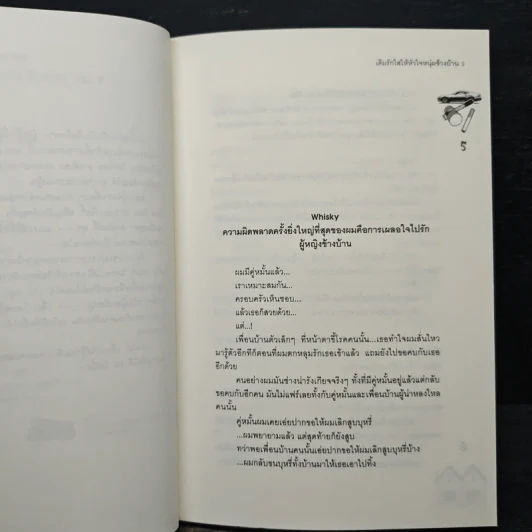 เติมรักใส่ให้หัวใจหนุ่มข้างบ้าน 3
5
Whisky
ความผิดพลาดครั้งยิ่งใหญ่ที่สุดของผมคือการเผลอใจไปรัก
ผู้หญิงข้างบ้าน
ผมมีคู่หมั้นแล้ว...
เราเหมาะสมกัน...
ครอบครัวเห็นชอบ...
แล้วเธอก็สวยด้วย...
แต่...!
เพื่อนบ้านตัวเล็กๆ ที่หน้าตาขี้โรคคนนั้น...เธอทำใจผมสั่นไหว
มารู้ตัวอีกทีก็ตอนที่ผมตกหลุมรักเธอเข้าแล้ว แถมยังไปขอคบกับเธอ
อีกด้วย
คนอย่างผมมันช่างน่ารังเกียจจริงๆ ทั้งที่มีคู่หมั้นอยู่แล้วแต่กลับ
ขอคบกับอีกคน มันไม่แฟร์เลยทั้งกับคู่หมั้นและเพื่อนบ้านผู้น่าหลงใหล
คนนั้น
คู่หมั้นผมเคยเอ่ยปากขอให้ผมเลิกสูบบุหรี่
...ผมพยายามแล้ว แต่สุดท้ายก็ยังสูบ
ทว่าพอเพื่อนบ้านคนนั้นเอ่ยปากขอให้ผมเลิกสูบบุหรี่บ้าง
...ผมกลับขนบุหรี่ทั้งบ้านมาให้เธอเอาไปทิ้ง